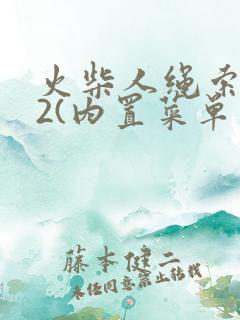 火柴人绳索
2(内置菜单
藤本健二
未经同意禁止转载